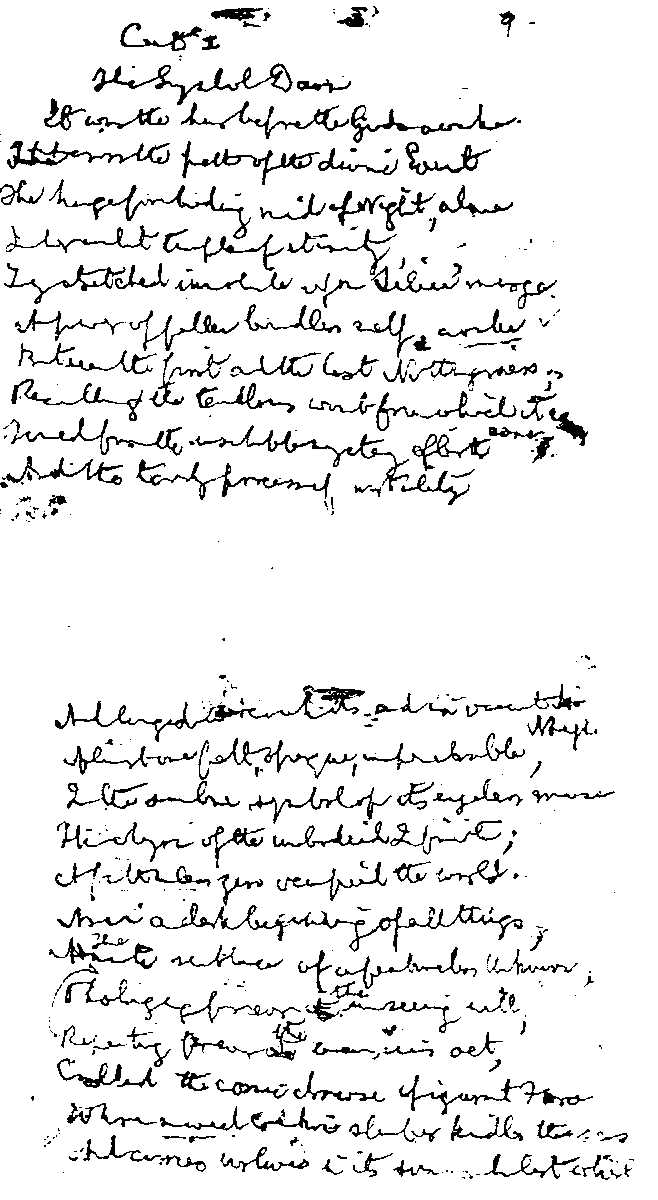 Canto I
The Symbol Dawn
It was the hour before the Gods awake.
Across the path of the divine Event
The huge foreboding mind of Night, alone
In her unlit temple of eternity,
Lay stretched immobile upon Silence' marge.
A power of fallen boundless self, awake
Between the first and the last Nothingness,
Recalling the tenebrous womb from which it came
Turned from the insoluble mystery of birth
And the tardy process of mortality
And longed to reach its end in vacant Nought.
Almost one felt, opaque, impenetrable,
In the sombre symbol of its eyeless muse
The abysm of the unbodied Infinite;
A fathomless zero occupied the world.
As in a dark beginning of all things,
The mute semblance of a featureless Unknown,
Prolonging for ever the unseeing will,
Repeating for ever the unconscious act,
Cradled the cosmic drowse of ignorant Force
Whose moved creative slumber kindles the suns
And carries our lives in its somnambulist whirl.